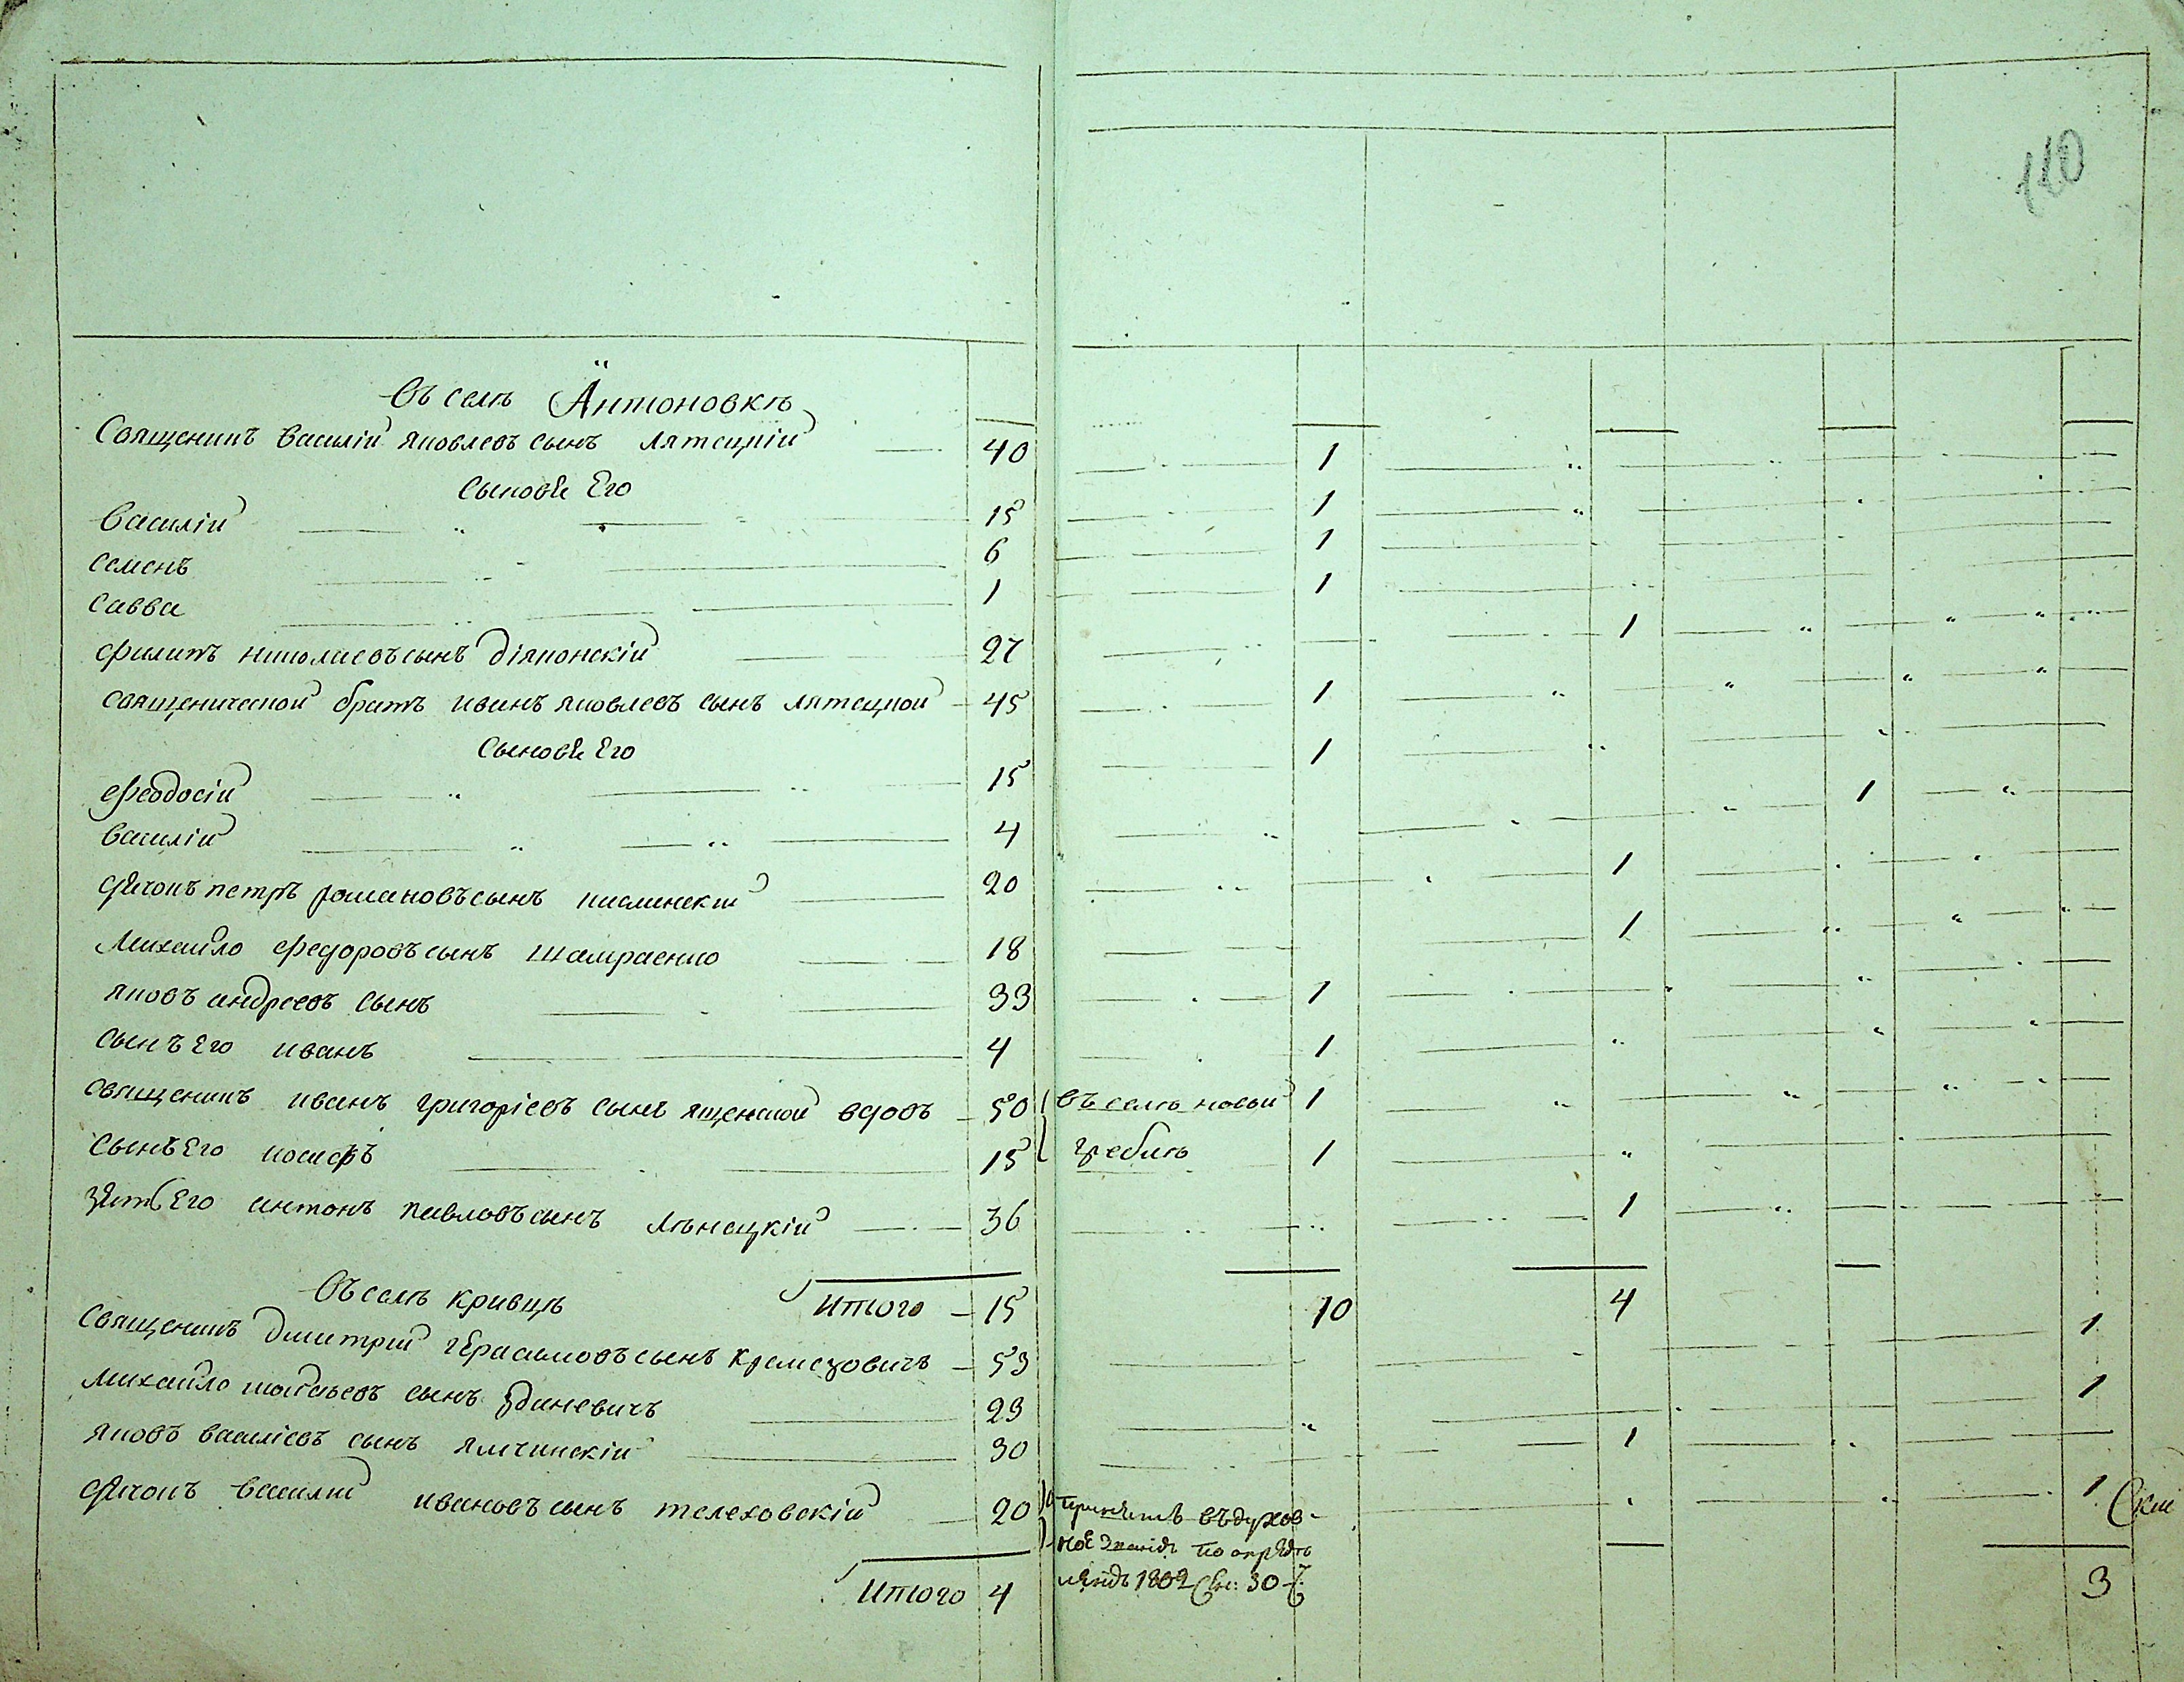 110
Въ селѣ Антоновкѣ
Священикъ Василій яковлевъ сынъ Лятецкій — 40 1
Сыновѣ Его
Василій 15 1
семенъ 6 1
савва 1 1
филипъ николаевъ сынъ 27 1
священической братъ иванъ яковлевъ сынъ Лятецкой — 45 1
Сыновѣ Его
феодосій 15 1
василій 4 1
дячокъ петръ романовъ сынъ 20 1
Михайло федоровъ сынъ Шамраенко 18 1
яковъ андреевъ сынъ 33 1
сынъ Его иванъ 4 1
священикъ иванъ григоріевъ сынъ ященской вдовъ — 50 въ селѣ новой 1
сынъ Его иосифъ 15 гребли 1
зять Его антонъ павловъ сынъ Лѣнецкій — 36 1
Итого — 15 10 4
Въ селѣ кривцѣ
Священикъ Дмитрий герасимовъ сынъ Кремезовичъ — 53 1
михайло сынъ зданевичъ 29 1
яковъ василіевъ сынъ ямчинскій 30 1
дячокъ василий ивановъ сынъ телеховскій 20 принятъ въ духов- 1
ное званіе по опредѣ
ленію 1802 30
Итого 4 3